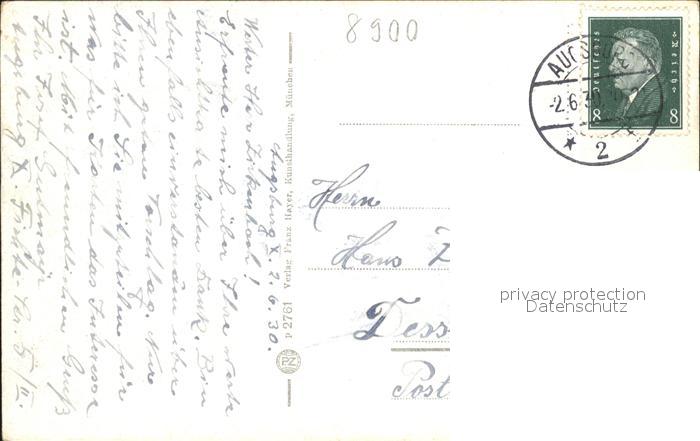 8900
AUGSBURG
-2.6.30
* 2 *
Deutsches Reich
8 8
Augsburg X. 2.6.30.
Werter Herr Zirkenbach!
Erfreute mich über Ihre werte
Ansichtskarte besten Dank. Bin
ebenfalls einverstanden über
Ihren guten Vorschlag. Nur
bitte ich Sie mitzuteilen für
was für Karten das Interesse
ist. Mit freundlichen Gruß
Ihr
Augsburg X. II.
P 2761 Verlag Franz Hayer, Kunsthandlung, München
PZ
Herrn
Hans Z
Dess
Post
privacy protection
Datenschutz